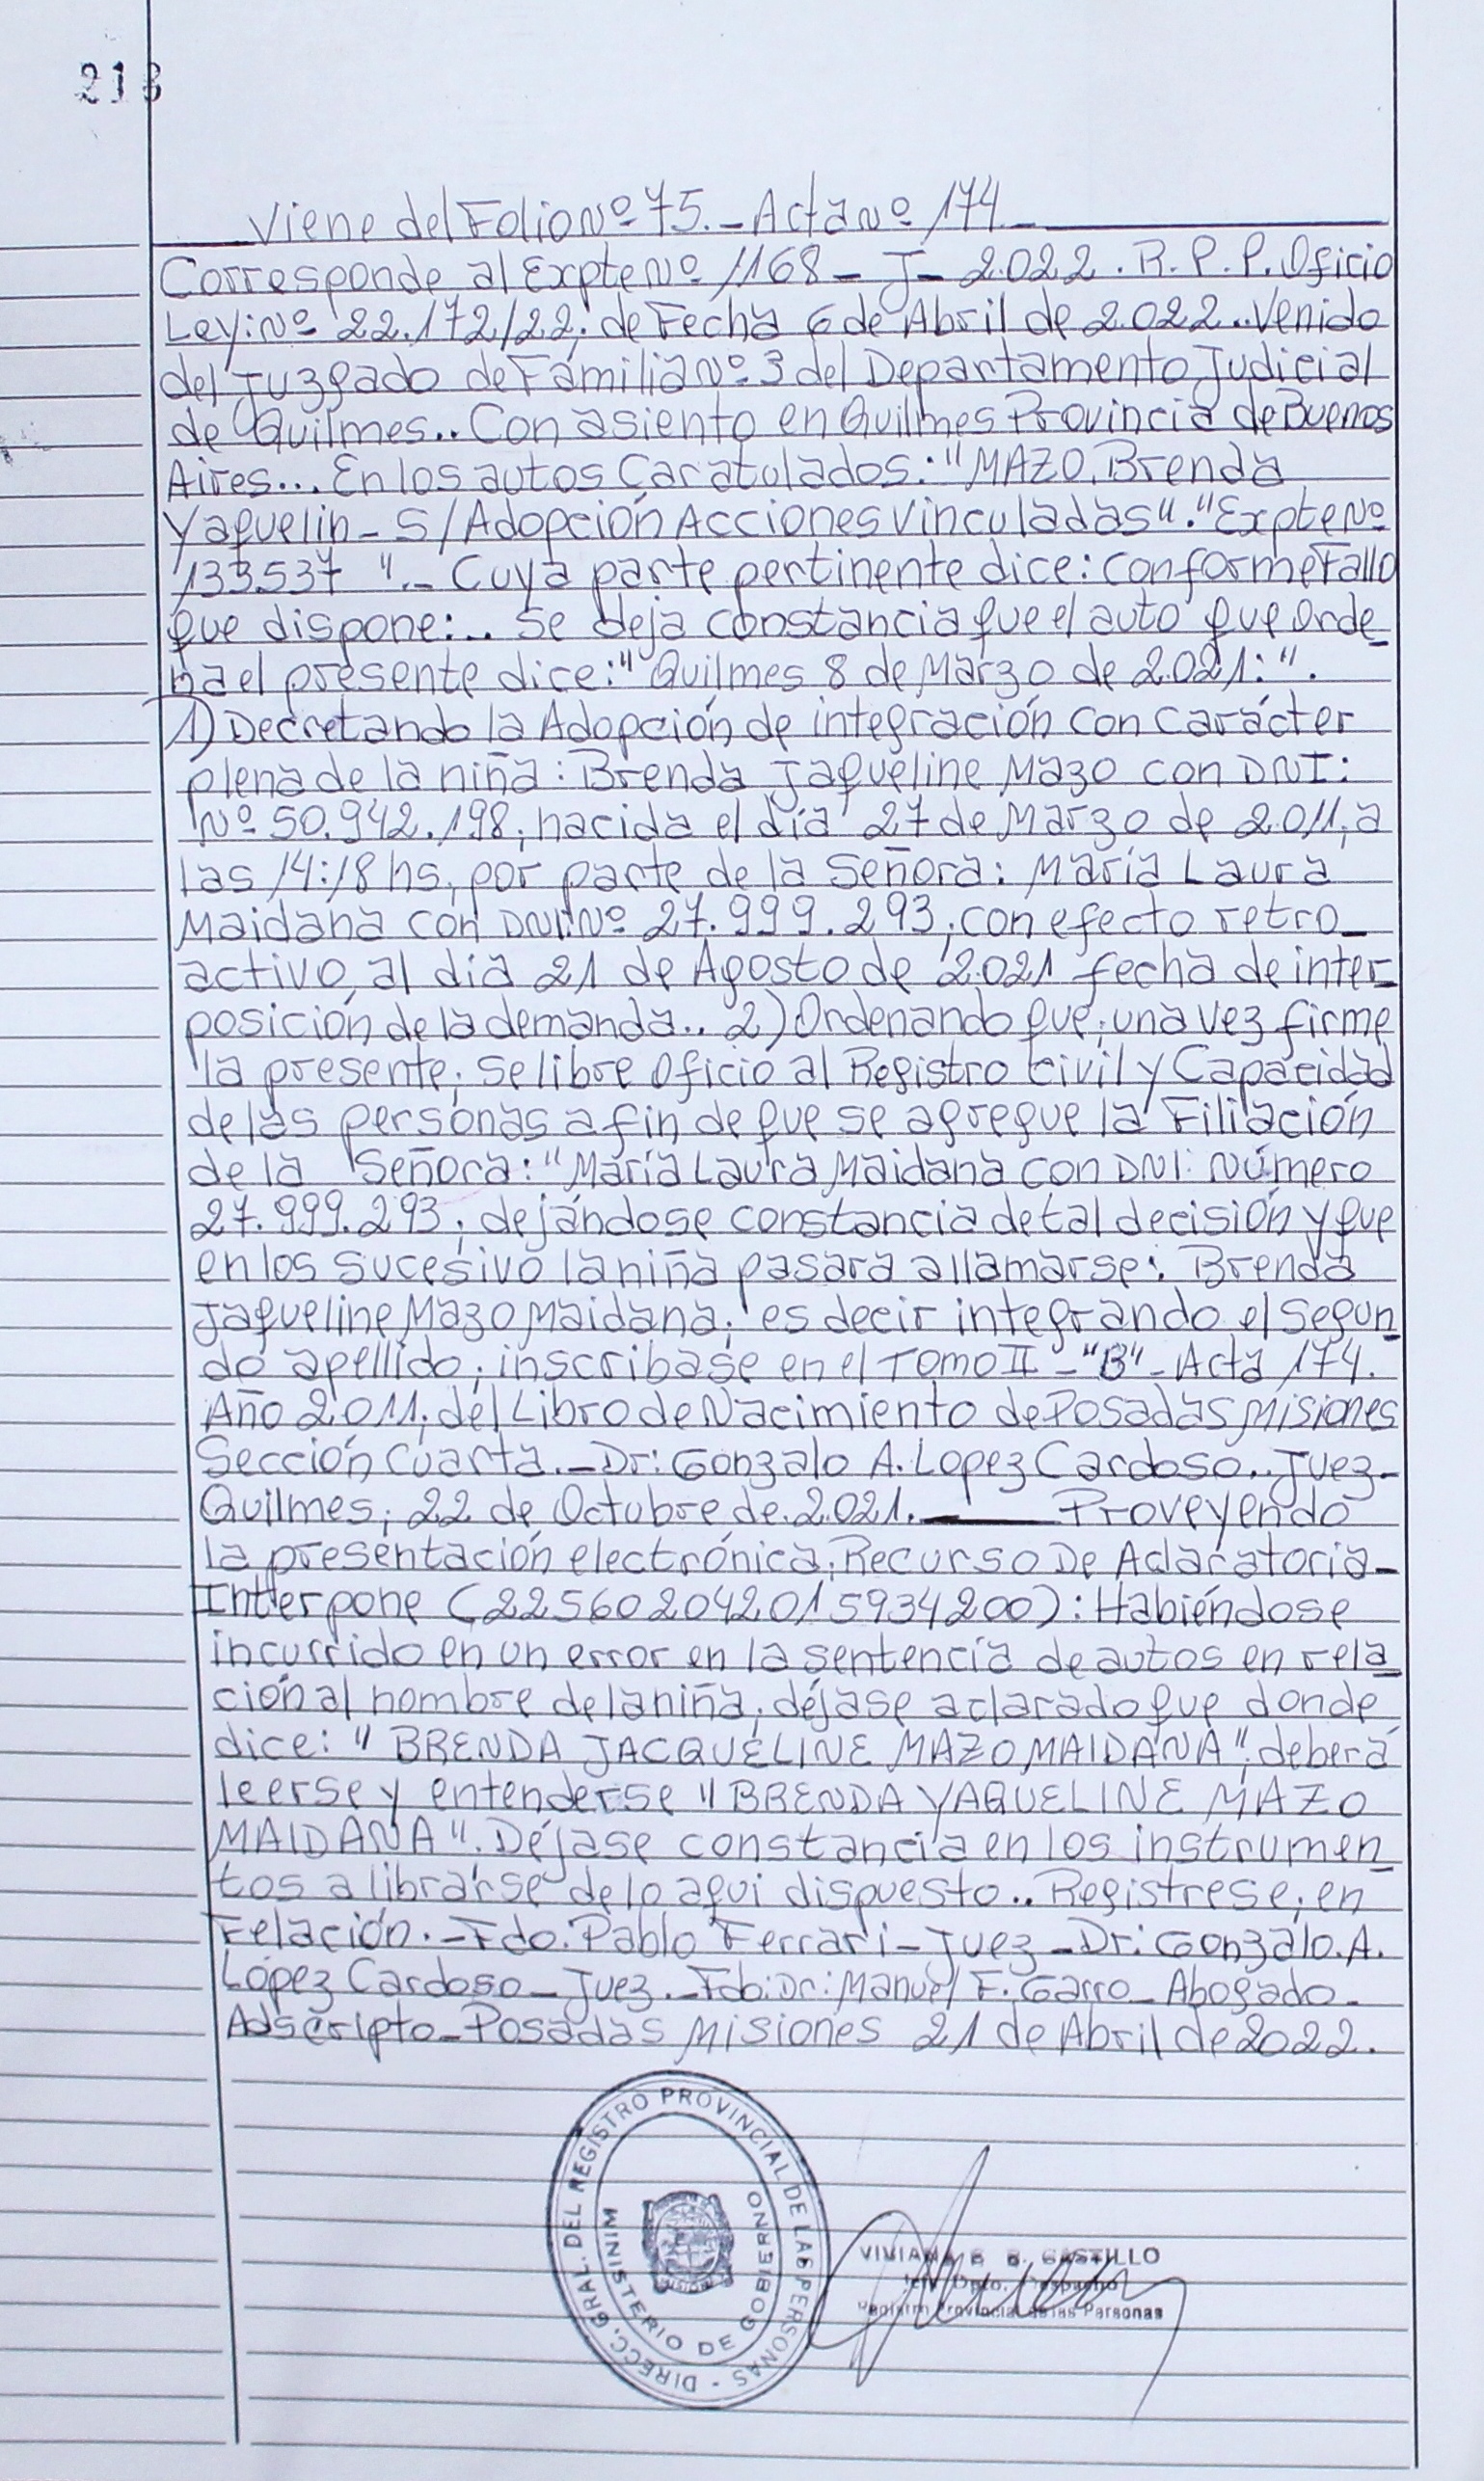 213
Viene del Folio Nº 75._ Acta Nº 174._
Corresponde al Expte Nº 1168_ J_ 2.022. R. P. P. Oficio
Ley: Nº 22.172/22; de Fecha 6 de Abril de 2.022.. Venido
del Juzgado de Familia Nº 3 del Departamento Judicial
de Quilmes.. Con asiento en Quilmes Provincia de Buenos
Aires... En los autos Caratulados: "MAZO, Brenda
Yaquelin_ S/Adopción Acciones Vinculadas". "Expte Nº
133537 "._ Cuya parte pertinente dice: conforme Fallo
que dispone:... se deja constancia que el auto que orde_
na el presente dice: "Quilmes 8 de Marzo de 2.021:".
1) Decretando la Adopción de integración con carácter
plena de la niña: Brenda Jaqueline Mazo con DNI:
Nº 50.942.198, nacida el día 27 de Marzo de 2.011, a
las 14:18 hs, por parte de la Señora: María Laura
Maidana con DNI: Nº 27.999.293; con efecto retro_
activo, al día 21 de Agosto de 2.021 fecha de inter_
posición de la demanda.. 2) Ordenando que; una vez firme
la presente; se libre Oficio al Registro Civil y Capacidad
de las personas a fin de que se agregue la Filiación
de la Señora: "María Laura Maidana con DNI: Número
27.999.293; dejándose constancia de tal decisión y que
en los sucesivo la niña pasara a llamarse: Brenda
Jaqueline Mazo Maidana; es decir integrando el segun_
do apellido; inscribase en el Tomo II_ "B"_ Acta 174.
Año 2.011; del Libro de Nacimiento de Posadas Misiones
Sección Cuarta._ Dr: Gonzalo A. Lopez Cardoso.. Juez_
Quilmes; 22 de Octubre de 2.021. ___ Proveyendo
la presentación electrónica; Recurso De Aclaratoria_
Interpone (225602042015934200): Habiéndose
incurrido en un error en la sentencia de autos en rela_
ción al nombre de la niña; déjase aclarado que donde
dice: "BRENDA JACQUELINE MAZO MAIDANA"; deberá
leerse y entenderse "BRENDA YAQUELINE MAZO
MAIDANA". Déjase constancia en los instrumen_
tos a librarse de lo aqui dispuesto.. Registrese; en
Felación._ Fdo. Pablo Ferrari_ Juez_ Dr: Gonzalo. A.
López Cardoso_ Juez._ Fdo: Dr: Manuel F. Garro_ Abogado_
Adscripto_ Posadas Misiones 21 de Abril de 2022.
DIRECC. GRAL. DEL REGISTRO PROVINCIAL DE LAS PERSONAS -
MINISTERIO DE GOBIERNO
VIVIANA CASTILLO
Dpto. Despacho
Registro Provincial de las Personas